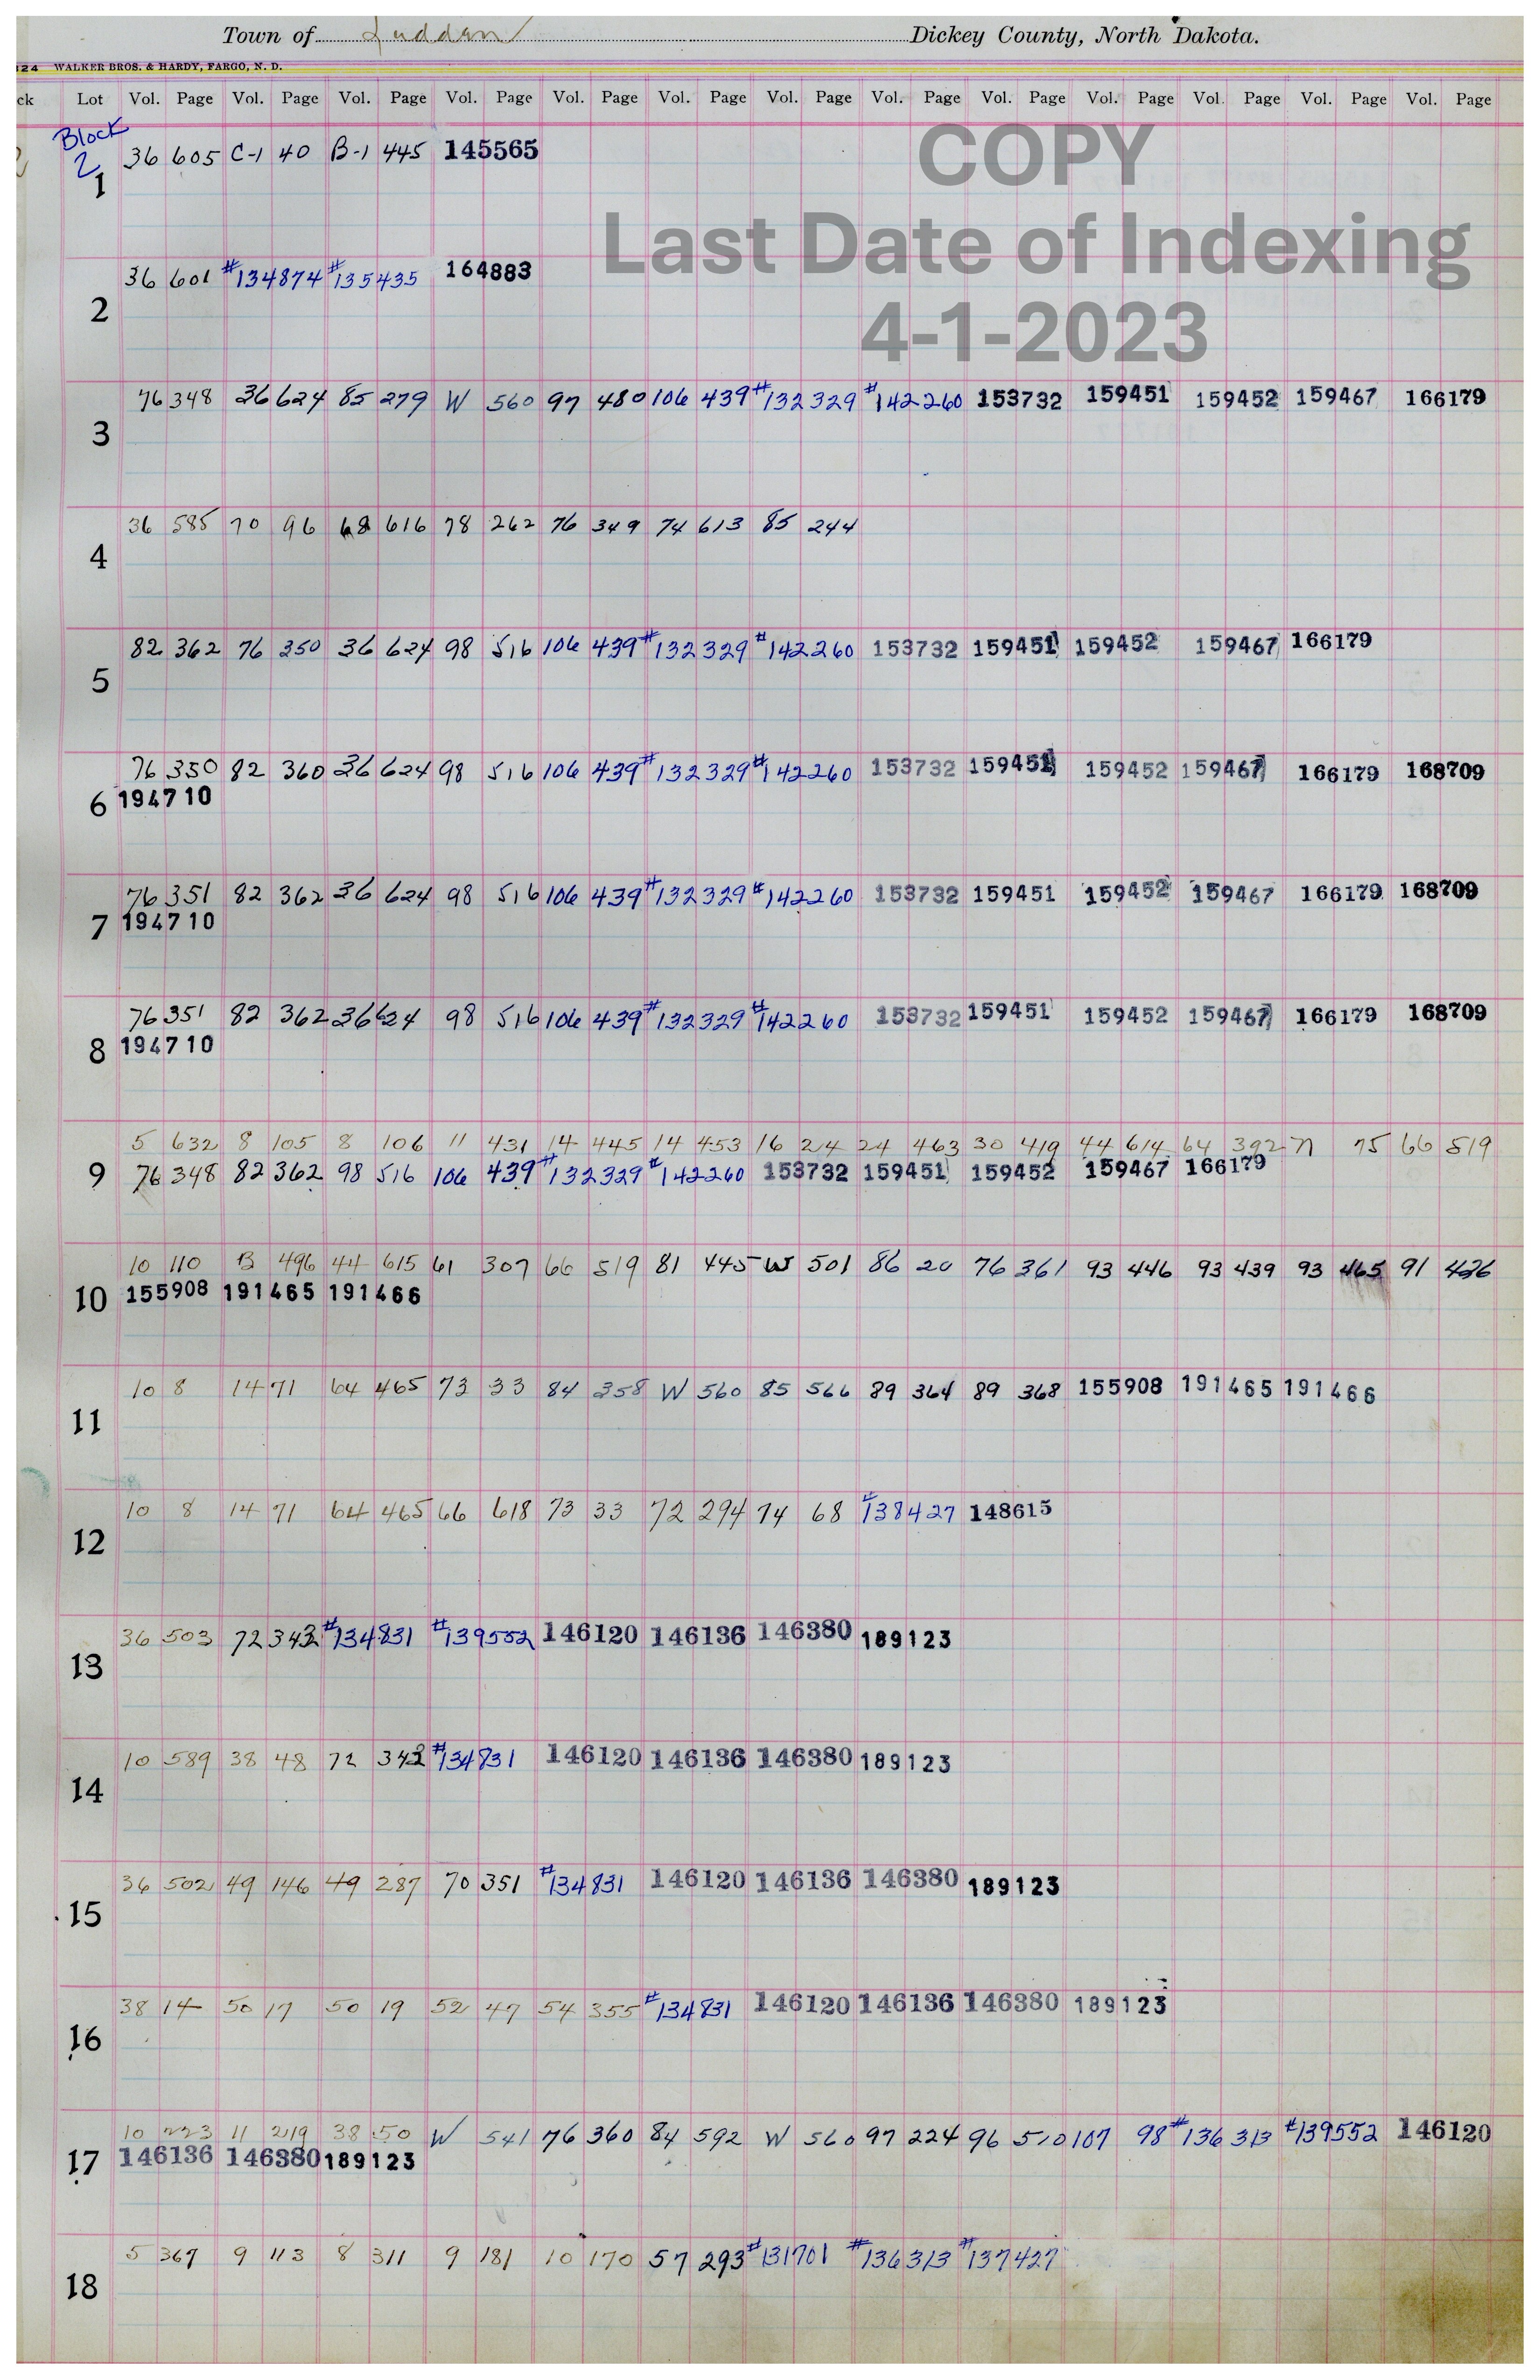 Town of Ludden Dickey County, North Dakota.
124 WALKER BROS. & HARDY, FARGO, N. D.
ck Lot Vol. Page Vol. Page Vol. Page Vol. Page Vol. Page Vol. Page Vol. Page Vol. Page Vol. Page Vol. Page Vol. Page Vol. Page Vol. Page
COPY
Last Date of Indexing
4-1-2023
Block
2
1 36 605 C-1 40 B-1 445 145565
2 36 601 #134874 #135435 164883
3 76 348 36 624 85 279 W 560 97 480 106 439 #132329 #142260 153732 159451 159452 159467 166179
4 36 585 70 96 68 616 78 262 76 349 74 613 85 244
5 82 362 76 350 36 624 98 516 106 439 #132329 #142260 153732 159451 159452 159467 166179
6 76 350 82 360 36 624 98 516 106 439 #132329 #142260 153732 159451 159452 159467 166179 168709
194710
7 76 351 82 362 36 624 98 516 106 439 #132329 #142260 153732 159451 159452 159467 166179 168709
194710
8 76 351 82 362 36 624 98 516 106 439 #132329 #142260 153732 159451 159452 159467 166179 168709
194710
5 632 8 105 8 106 11 431 14 445 14 453 16 24 24 463 30 419 44 614 64 392 71 75 66 519
9 76 348 82 362 98 516 106 439 #132329 #142260 153732 159451 159452 159467 166179
10 110 B 496 44 615 61 307 66 519 81 445 W 501 86 20 76 361 93 446 93 439 93 465 91 426
10 155908 191465 191466
11 10 8 14 71 64 465 73 33 84 358 W 560 85 566 89 364 89 368 155908 191465 191466
12 10 8 14 71 64 465 66 618 73 33 72 294 74 68 #138427 148615
13 36 503 72 342 #134831 #139552 146120 146136 146380 189123
14 10 589 38 48 72 342 #134831 146120 146136 146380 189123
15 36 502 49 146 49 287 70 351 #134831 146120 146136 146380 189123
16 38 14 50 17 50 19 52 47 54 355 #134831 146120 146136 146380 189123
10 223 11 219 38 50 W 541 76 360 84 592 W 560 97 224 96 510 107 98 #136313 #139552 146120
17 146136 146380 189123
18 5 367 9 113 8 311 9 181 10 170 57 293 #131701 #136313 #137427